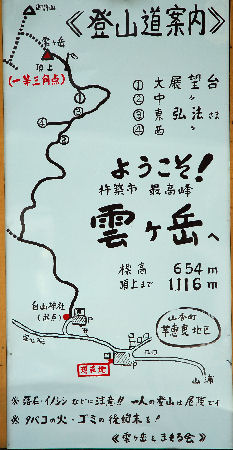 《登山道案内》
雲ヶ岳
頂上
(一等三角点)
① 大展望台
② 中 〃
③ 東 弘法さま
④ 西 〃
①
②
③
④
ようこそ！
杵築市 最高峰
雲ヶ岳へ
標高 654m
頂上まで 1,116m
白山神社
P
山本町
草恵良地区
現在地
P
山浦
※ 落石・イノシシなどに注意!! 一人の登山は危険です
※ タバコの火・ゴミの後始末を!
《雲ヶ岳をまもる会》